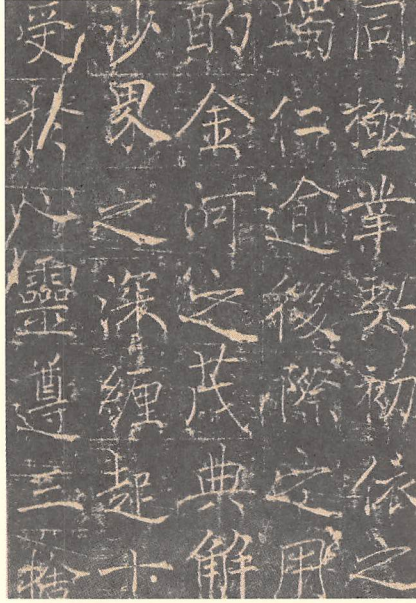 同極業契初依之
躅仁逾後際之用
酌金河之茂典解
沙界之深纏超十
受於八靈遵三